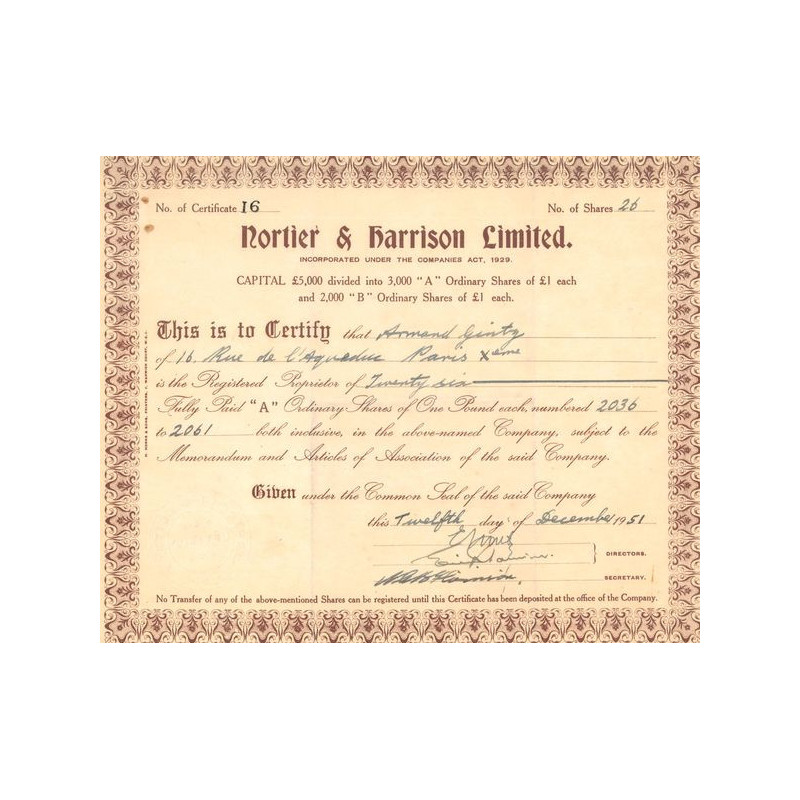 No. of Certificate 16 No. of Shares 26
Nortier & Harrison Limited.
INCORPORATED UNDER THE COMPANIES ACT, 1929.
CAPITAL £5,000 divided into 3,000 "A" Ordinary Shares of £1 each
and 2,000 "B" Ordinary Shares of £1 each.
This is to Certify that Armand Ginty
of 16. Rue de l'Aqueduc Paris Xeme
is the Registered Proprietor of Twenty six
Fully Paid "A" Ordinary Shares of One Pound each, numbered 2036
to 2061 both inclusive, in the above-named Company, subject to the
Memorandum and Articles of Association of the said Company.
Given under the Common Seal of the said Company
this Twelfth day of December 1951
DIRECTORS.
SECRETARY.
No Transfer of any of the above-mentioned Shares can be registered until this Certificate has been deposited at the office of the Company.